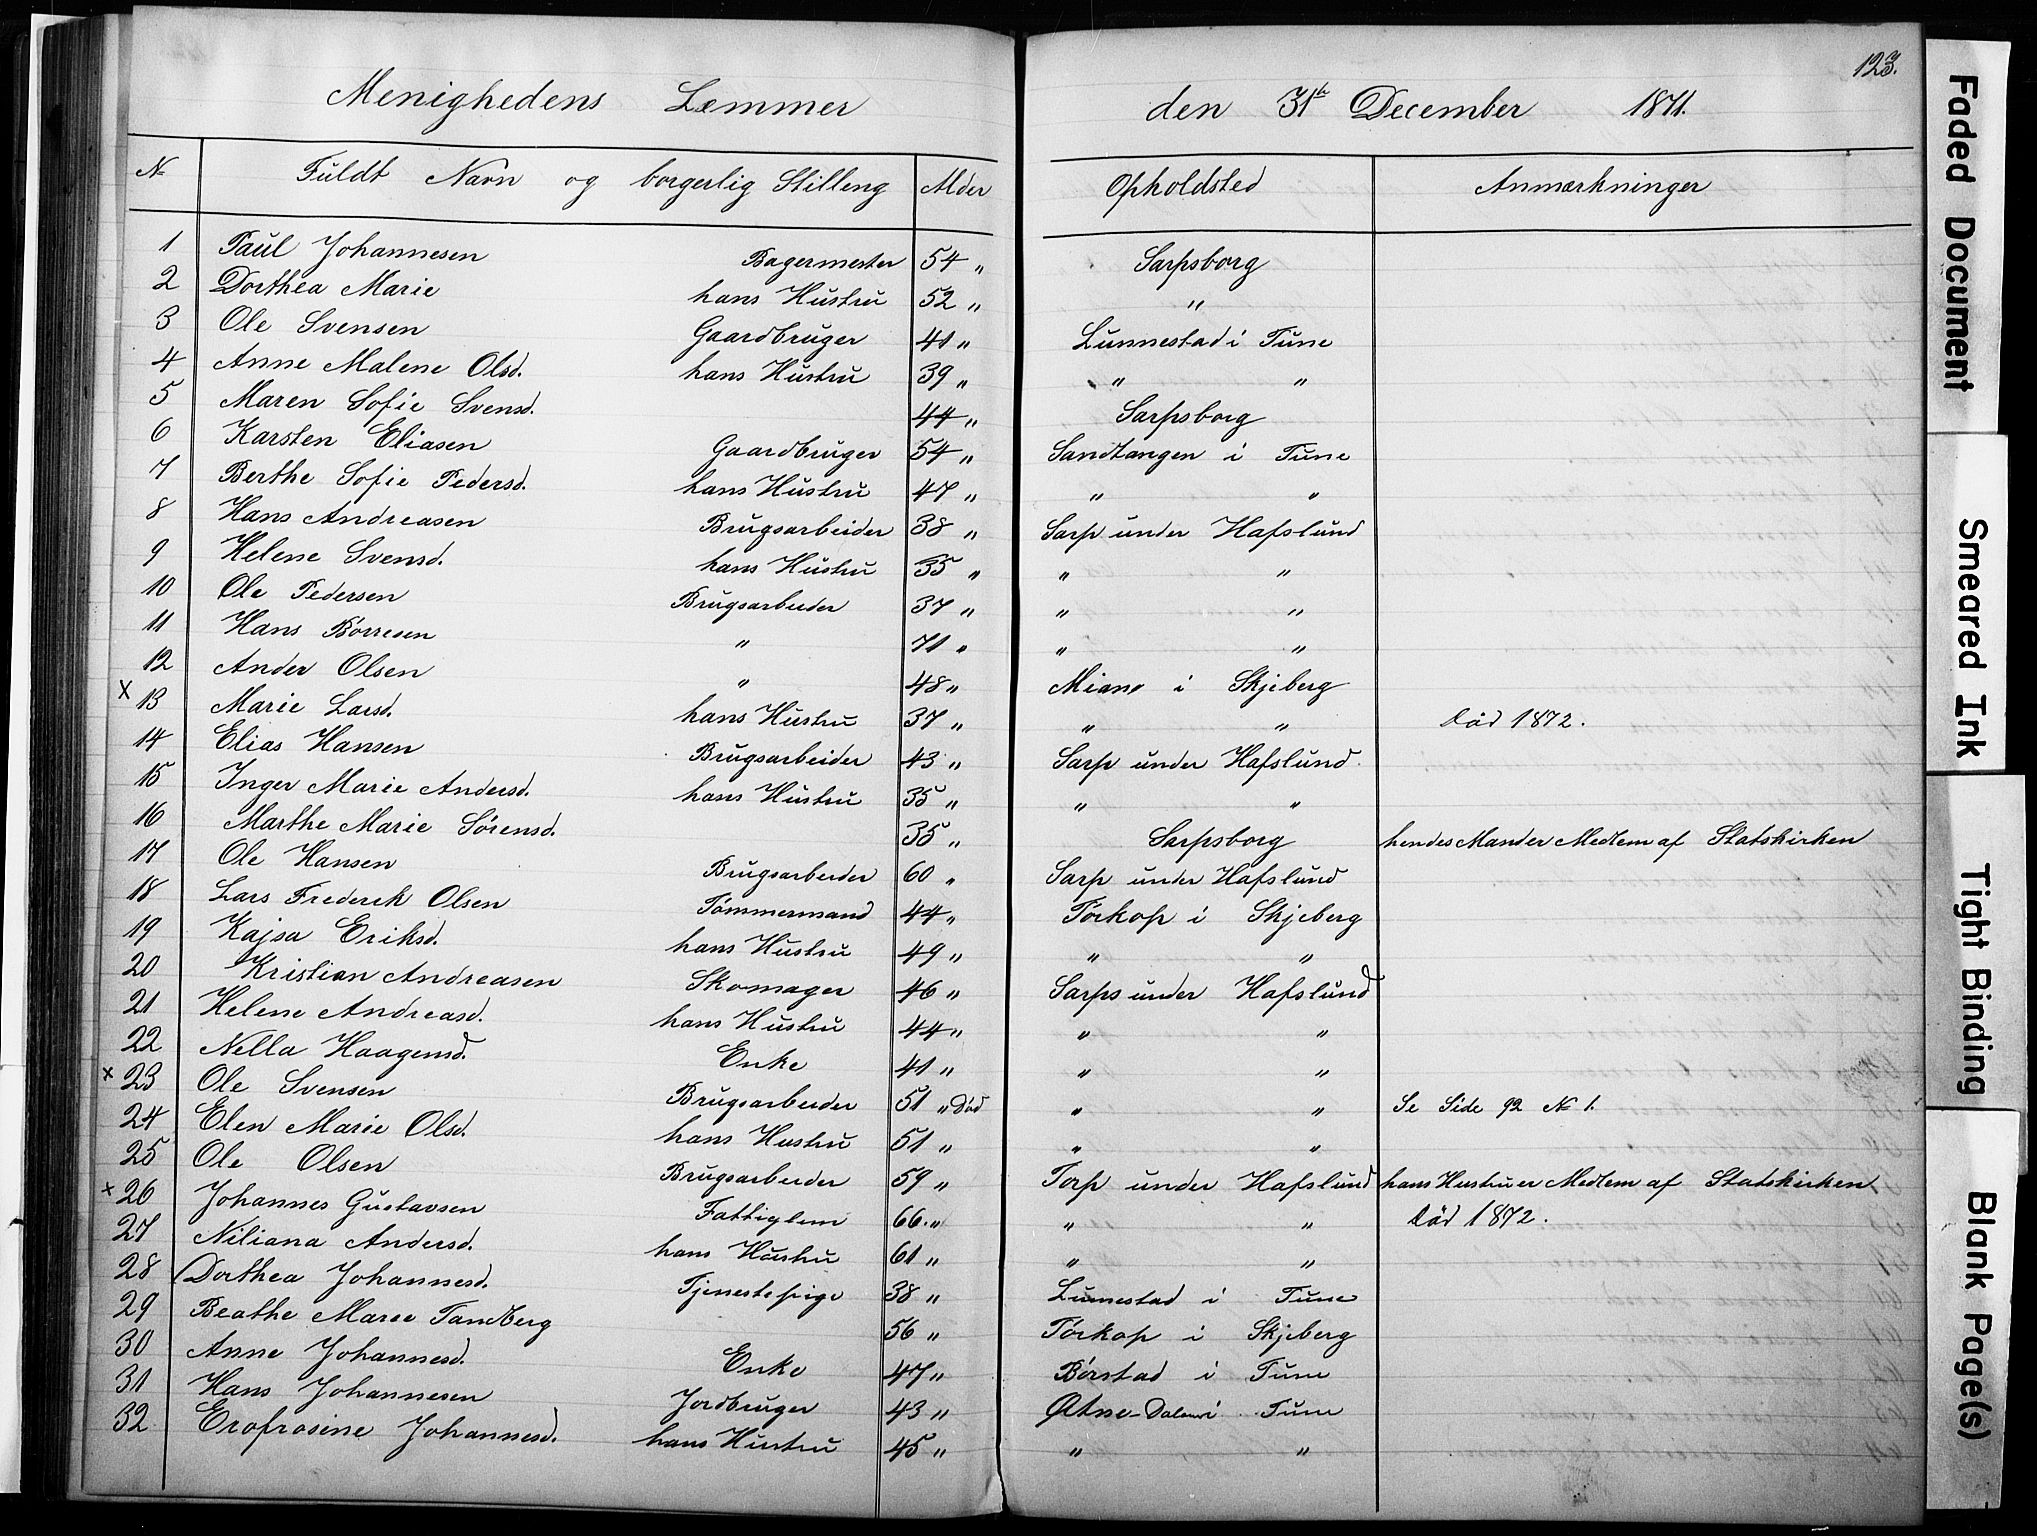 123.
Menighedens Lemmer den 31th December 1871.
N. Fuldt Navn og borgerlig Stilling Alder Opholdsted Anmærkninger
1 Paul Johannesen Bagermester 54 " Sarpsborg
2 Dorthea Marie hans Hustru 52 " "
3 Ole Svensen Gaardbruger 41 " Lunnestad i Tune
4 Anne Malene Olsd. hans Hustru 39 " " "
5 Maren Sofie Svensd. 44 " Sarpsborg
6 Karsten Eliasen Gaardbruger 54 " Sandtangen i Tune
7 Berthe Sofie Pedersd. hans Hustru 47 " " "
8 Hans Andreasen Brugsarbeider 38 " Sarp under Hafslund
9 Helene Svensd. hans Hustru 35 " " "
10 Ole Pedersen Brugsarbeider 37 " " "
11 Hans Börresen " 71 " " "
12 Ander Olsen " 48 " i Skjeberg
x 13 Marie Larsd. hans Hustru 37 " " " Död 1872.
14 Elias Hansen Brugsarbeider 43 " Sarp under Hafslund.
15 Inger Marie Andersd. hans Hustru 35 " " "
16 Marthe Marie Sörensd. 35 " Sarpsborg hendes Mand er Medlem af Statskirken
17 Ole Hansen Brugsarbeider 60 " Sarp under Hafslund
18 Lars Frederik Olsen Tömmermand 44 " Törkop i Skjeberg
19 Kajsa Eriksd. hans Hustru 49 " " "
20 Kristian Andreasen Skomager 46 " Sarps under Hafslund
21 Helene Andreasd. hans Hustru 44 " " "
22 Nella Haagensd. Enke 41 " " "
x 23 Ole Svensen Brugsarbeider 51 " Död " " Se Side 92 N 1.
24 Elen Marie Olsd. hans Hustru 51 " " "
25 Ole Olsen Brugsarbeider 59 " Torp under Hafslund hans Hustru er Medlem af Statskirken
x 26 Johannes Gustavsen Fattiglem 66 " " " Död 1872.
27 Niliana Andersd. hans Hustru 61 " " "
28 Dorthea Johannesd. Tjenestepige 38 " Lunnestad i Tune
29 Beathe Marie Tandberg 56 " Törkop i Skjeberg
30 Anne Johannesd. Enke 47 " Börstad i Tune
31 Hans Johannesen Jordbruger 43 " i Tune
32 Erofrosine Johannesd. hans Hustru 45 " " "
Faded Document
Smeared Ink
Tight Binding
Blank Page(s)